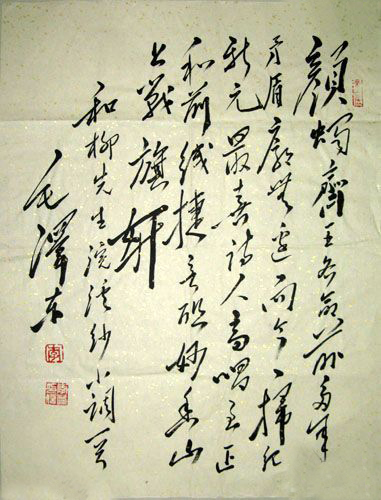 顏斶齊王各命前多年
矛盾廓無边而今一掃纪
新元最喜詩人高唱至正
和前线捷音联妙香山
上戰旗妍
和柳先生浣溪纱小調
毛澤东